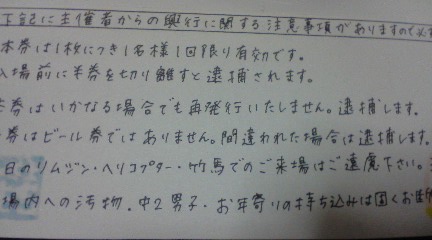 下記に主催者からの興行に関する注意事項がありますので必ず
本券は1枚につき1名様1回限り有効です。
入場前に半券を切り離すと逮捕されます。
券はいかなる場合でも再発行いたしません。逮捕します。
券はビール券ではありません。間違われた場合は逮捕します。
日のリムジン・ヘリコプター・竹馬でのご来場はご遠慮下さい。
場内への汚物、中2男子・お年寄りの持ち込みは固くお